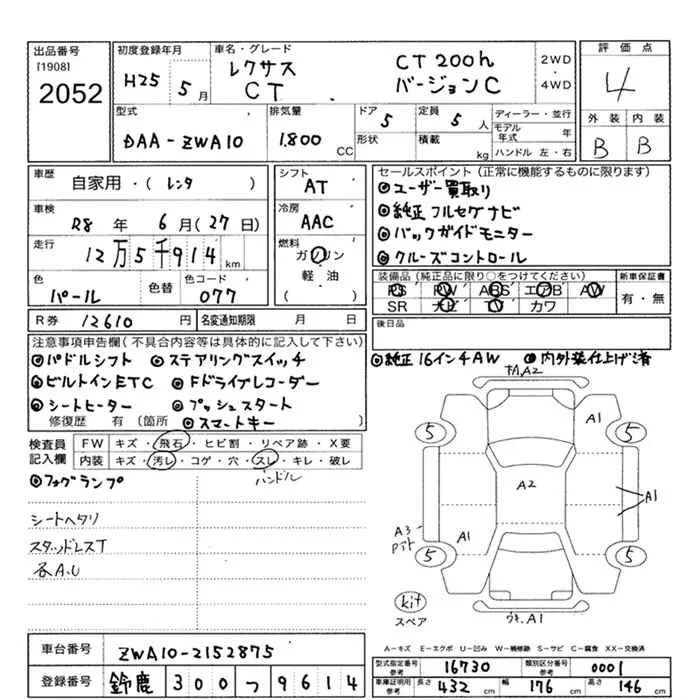 出品番号
[1908]
2052
初度登録年月
H25 5月
車名・グレード
レクサス CT 200h
CT バージョンC
2WD
・
4WD
評価点
4
外装 内装
B B
型式
DAA-ZWA10
排気量
1.800 CC
ドア 5
定員 5 人
形状
積載 kg
ディーラー・並行
モデル年式 年
ハンドル 左・右
車歴
自家用・(レンタ )
車検
R8 年 6 月(27 日)
走行
12万5千914 km
色
パール
色替
色コード
077
シフト
AT
冷房
AAC
燃料
ガソリン
軽油
( )
セールスポイント(正常に機能するものに限ります)
◎ユーザー買取り
◎純正フルセグナビ
◎バックガイドモニター
◎クルーズコントロール
装備品(純正品に限り○をつけてください)
PS PW ABS エアB AW
SR ナビ TV カワ
新車保証書
有・無
後日品
R券 12610 円
名変通知期限 月 日
注意事項申告欄(不具合内容等は具体的に記入して下さい)
◎パドルシフト ◎ステアリングスイッチ
◎ビルトインETC ◎Fドライブレコーダー
◎シートヒーター ◎プッシュスタート
修復歴 有(箇所 ◎スマートキー
◎純正16インチAW ◎内外装仕上げ済
検査員記入欄
FW キズ・飛石・ヒビ割・リペア跡・X要
内装 キズ・汚レ・コゲ・穴・スレ・キレ・破レ
ハンドル
◎フォグランプ
シートヘタリ
スタッドレスT
各A.U
A2
A1
5 5
A2
A1
A3
A1
5 5
kit
スペア
A1
A-キズ E-エクボ U-凹み W-補修跡 S-サビ C-腐食 XX-交換済
車台番号 ZWA10-2152875
登録番号 鈴鹿 300 つ 9614
型式指定番号 参考 16730
類別区分番号 参考 0001
車庫証明用 参考 長さ 432 cm 幅 176 cm 高さ 146 cm